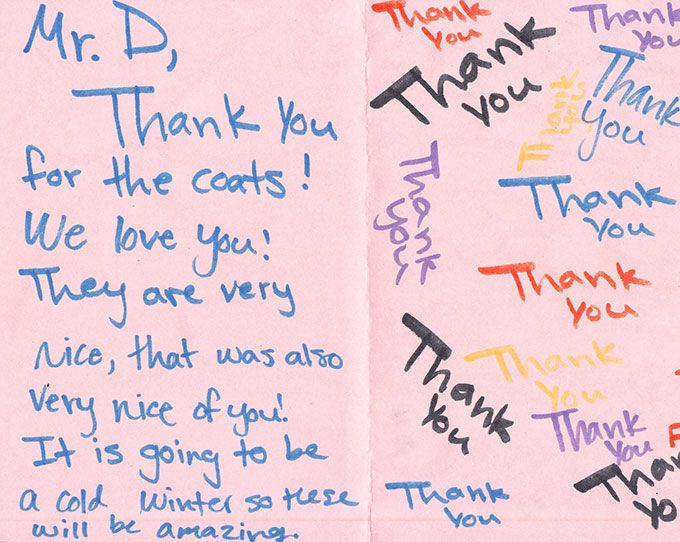 Mr. D,
Thank You
for the coats!
We love you!
They are very
nice, that was also
very nice of you!
It is going to be
a cold winter so these
will be amazing.
Thank
You
Thank
You
Thank
you
Thank
you
Thank
you
Thank
you
Thank
You
Thank
You
Thank
You
Thank
You
Thank
You
Than
Yo
Thank
You